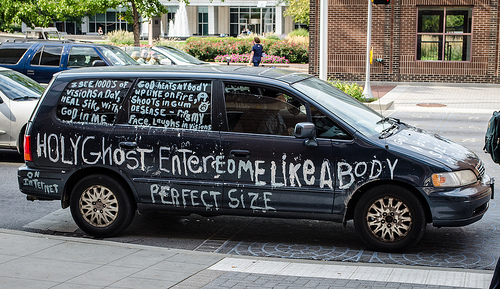 I SEE 1000's OF
VISIONS A DAY,
HEAL Sik, with
GOD in ME
GOD heats my BODY
UP Like on Fire,
Shoots in Gum
DESEASE - my
Face, Laughs in visions
HOLYGhOST EnterSOME LIKE A BODY
PERFECT SIZE
ON
INTERNET